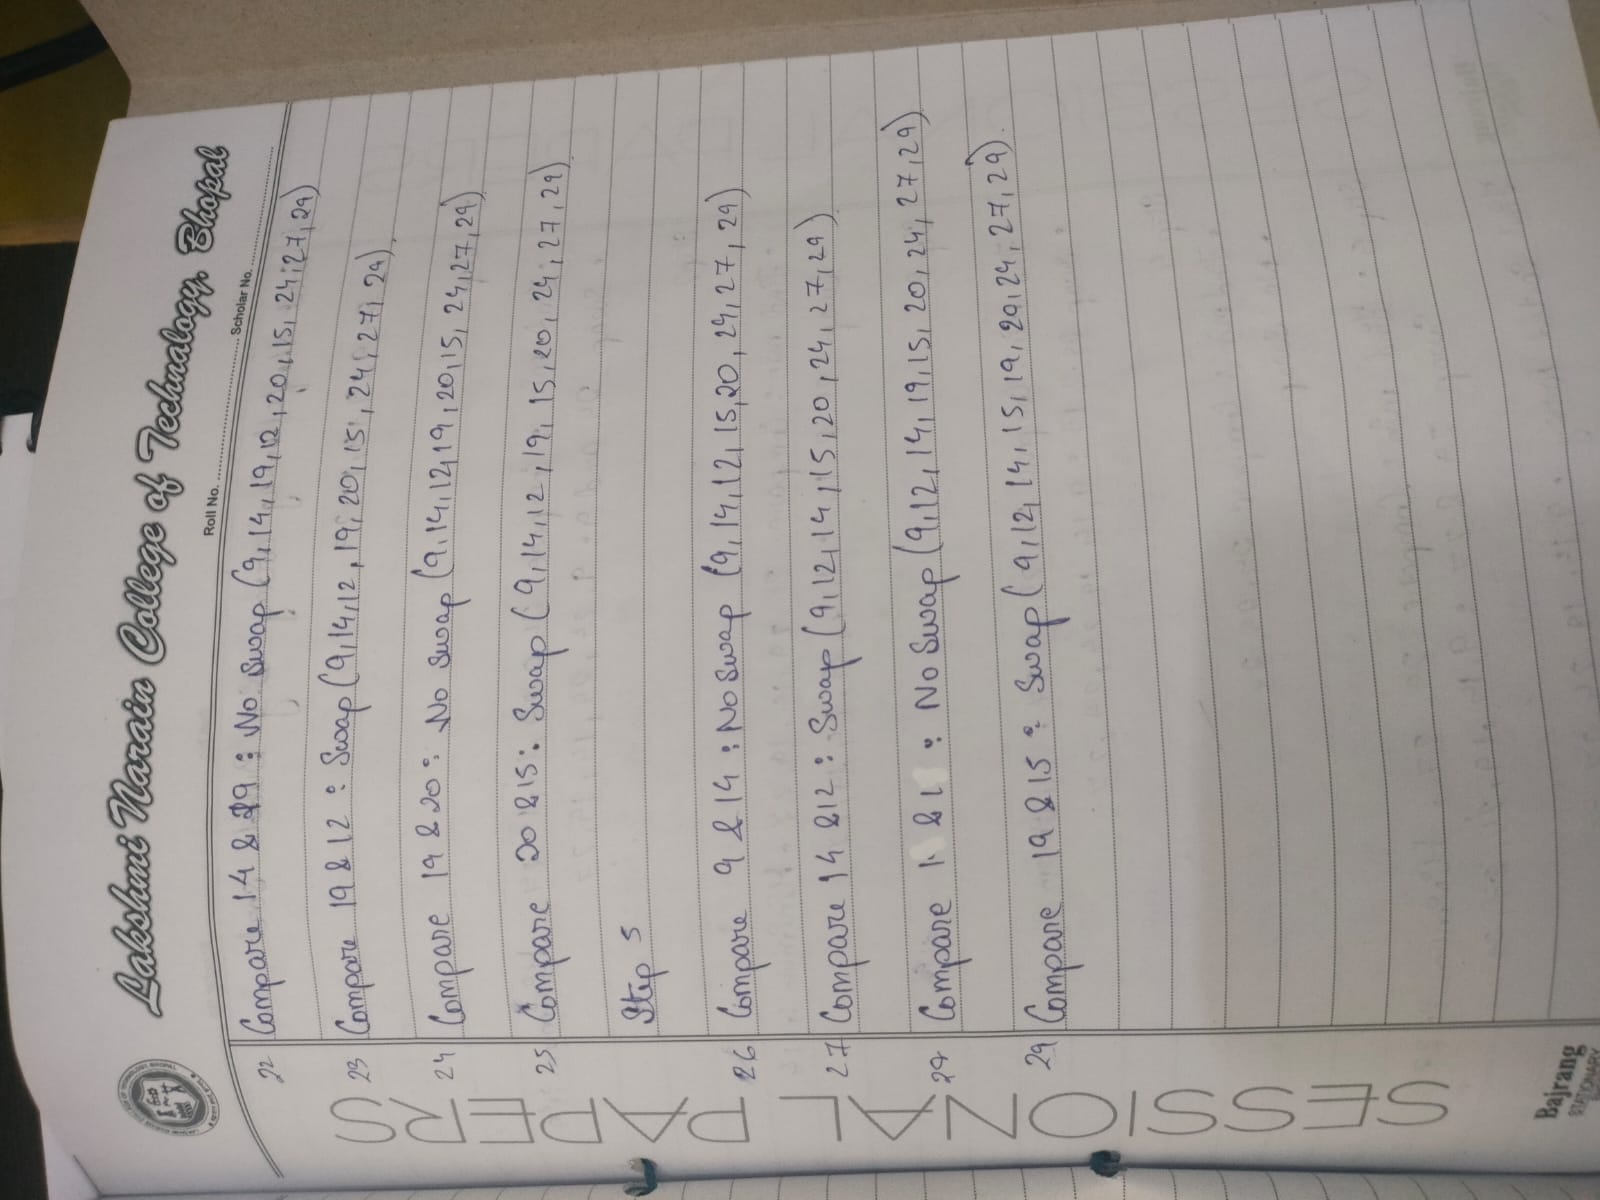 Lakshmi Narain College of Technalogy, Bhopal
Roll No. Scholar No.
SESSIONAL PAPERS
22 Compare 14 & 19 : No Swap (9, 14, 19, 12, 20, 15, 24, 27, 29)
23 Compare 19 & 12 : Swap (9, 14, 12, 19, 20, 15, 24, 27, 29).
24 Compare 19 & 20 : No Swap (9, 14, 12, 19, 20, 15, 24, 27, 29)
25 Compare 20 & 15 : Swap (9, 14, 12, 19, 15, 20, 24, 27, 29)
Step 5
26 Compare 9 & 14 : No Swap (9, 14, 12, 15, 20, 24, 27, 29)
27 Compare 14 & 12 : Swap (9, 12, 14, 15, 20, 24, 27, 29)
Compare & : No Swap (9, 12, 14, 19, 15, 20, 24, 27, 29)
29 Compare 19 & 15 : Swap (9, 12, 14, 15, 19, 20, 24, 27, 29).
Bajrang
STATIONARY